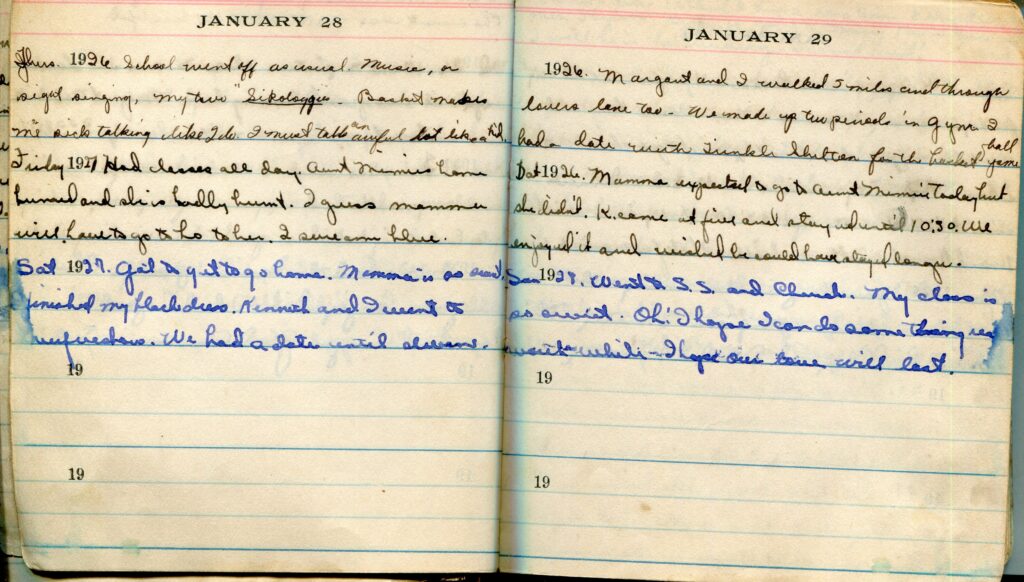 JANUARY 28
Thurs. 1926 School went off as usual. Music, or
sight singing, my two "Sikologgies. Basket makes
me sick talking like I do. I must talk an awful lot like a
Friday 1927 Had classes all day. Aunt Minnie's home
burned and she is badly burnt. I guess mamma
will have to go to to her. I sure am blue.
Sat 1927. Got to get to go home. Mamma is so sweet.
finished my black dress. Kenneth and I went to
We had a date until eleven.
19
19
JANUARY 29
1926. Margaret and I walked 5 miles and through
lovers lane too. We made up two periods in Gym I
had a date with for the basket ball game
Sat 1926. Mamma expected to go to Aunt Minnie today but
she did'd. K. came at five and stayed until 10:30. We
enjoyed it and wished he could have stayed longer.
Sun 1927. Went to S.S. and Church. My class is
so sweet. Oh! I hope I can do some thing real
worth while – I hope our love will last.
19
19